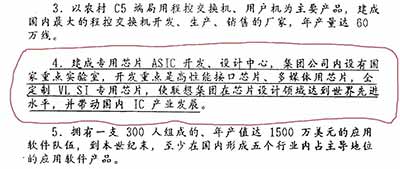 3. 以农村 C5 端局用程控交换机、用户机为主要产品，建成
国内最大的程控交换机开发、生产、销售的厂家，年产量达 60
万线。
4. 建成专用芯片 ASIC 开发、设计中心，集团公司内设有国
家重点实验室，开发重点是高性能接口芯片、多媒体用芯片，全
定制 VLSI 专用芯片，使联想集团在芯片设计领域达到世界先进
水平，并带动国内 IC 产业发展。
5. 拥有一支 300 人组成的、年产值达 1500 万美元的应用
软件队伍，到本世纪末，至少在国内形成五个行业内占主导地位
的应用软件产品。